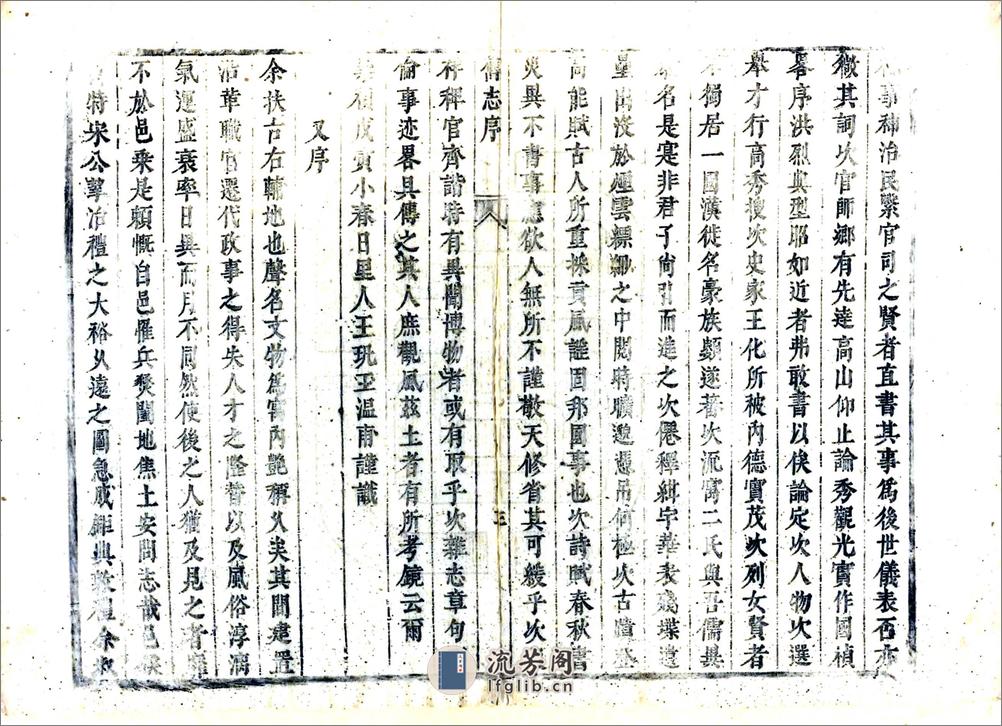 事稗治民繫官司之賢者直書其事為後世儀表否亦
微其詞次官師鄉有先達高山仰止論秀觀光實作國楨
畧序洪烈典型耶如近者弗敢書以俟論定次人物次選
舉才行高秀搜次史家王化所被內德實茂次列女賢者
不獨居一國漢徙名豪族顯遂著次流寓二氏與吾儒異
名是寔非君子尚引而進之次僊釋緝宇華表殘堞遺
壘出沒於煙雲縹緲之中閱時曠邈憑弔何極次古蹟登
高能賦古人所重採貢風謠固邦國事也次詩賦春秋書
災異不書事應欲人無所不謹敬天修省其可緩乎次
傳志序
三
祥稗官齊諧時有異聞博物者或有取乎次雜志章句
偷事迹畧具傳之其人庶觀風茲土者有所考鏡云爾
戊寅小春日里人王玑玉溫甫謹識
又序
余扶古右輔地也聲名文物為寰內艷稱久矣其間建置
沿革職官遷代政事之得失人才之隆替以及風俗淳漓
氣運盛衰率日異而月不同然使後之人猶及見之者
不於邑乘是賴慨自邑罹兵燹闔地焦土安問志哉邑
特宋公筆治禮之大裕久遠之圖急成鉅典
流芳阁
lfglib.cn